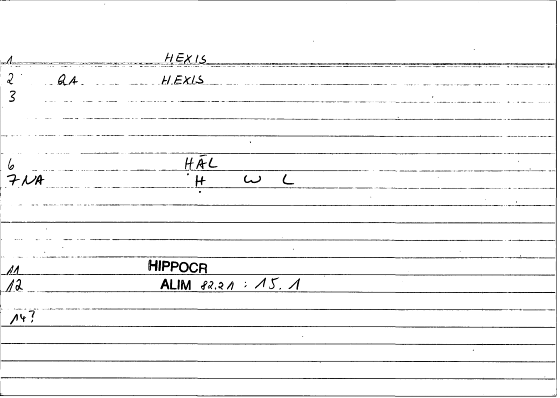 1 HEXIS
2 QA HEXIS
3
6 ḤĀL
7 NA Ḥ W L
11 HIPPOCR
12 ALIM 82.21 : 15.1
14?